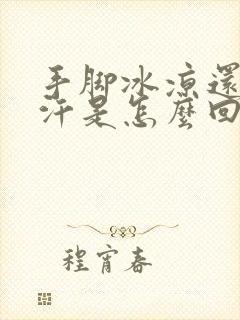 手脚冰凉還
汗是怎麼回
程宵春